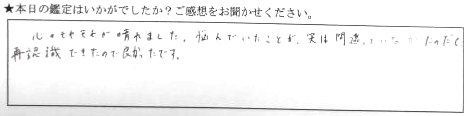 ★本日の鑑定はいかがでしたか？ご感想をお聞かせください。
心のモヤモヤが晴れました。悩んでいたことが、実は間違っていなかったのだと
再認識できたので良かったです。